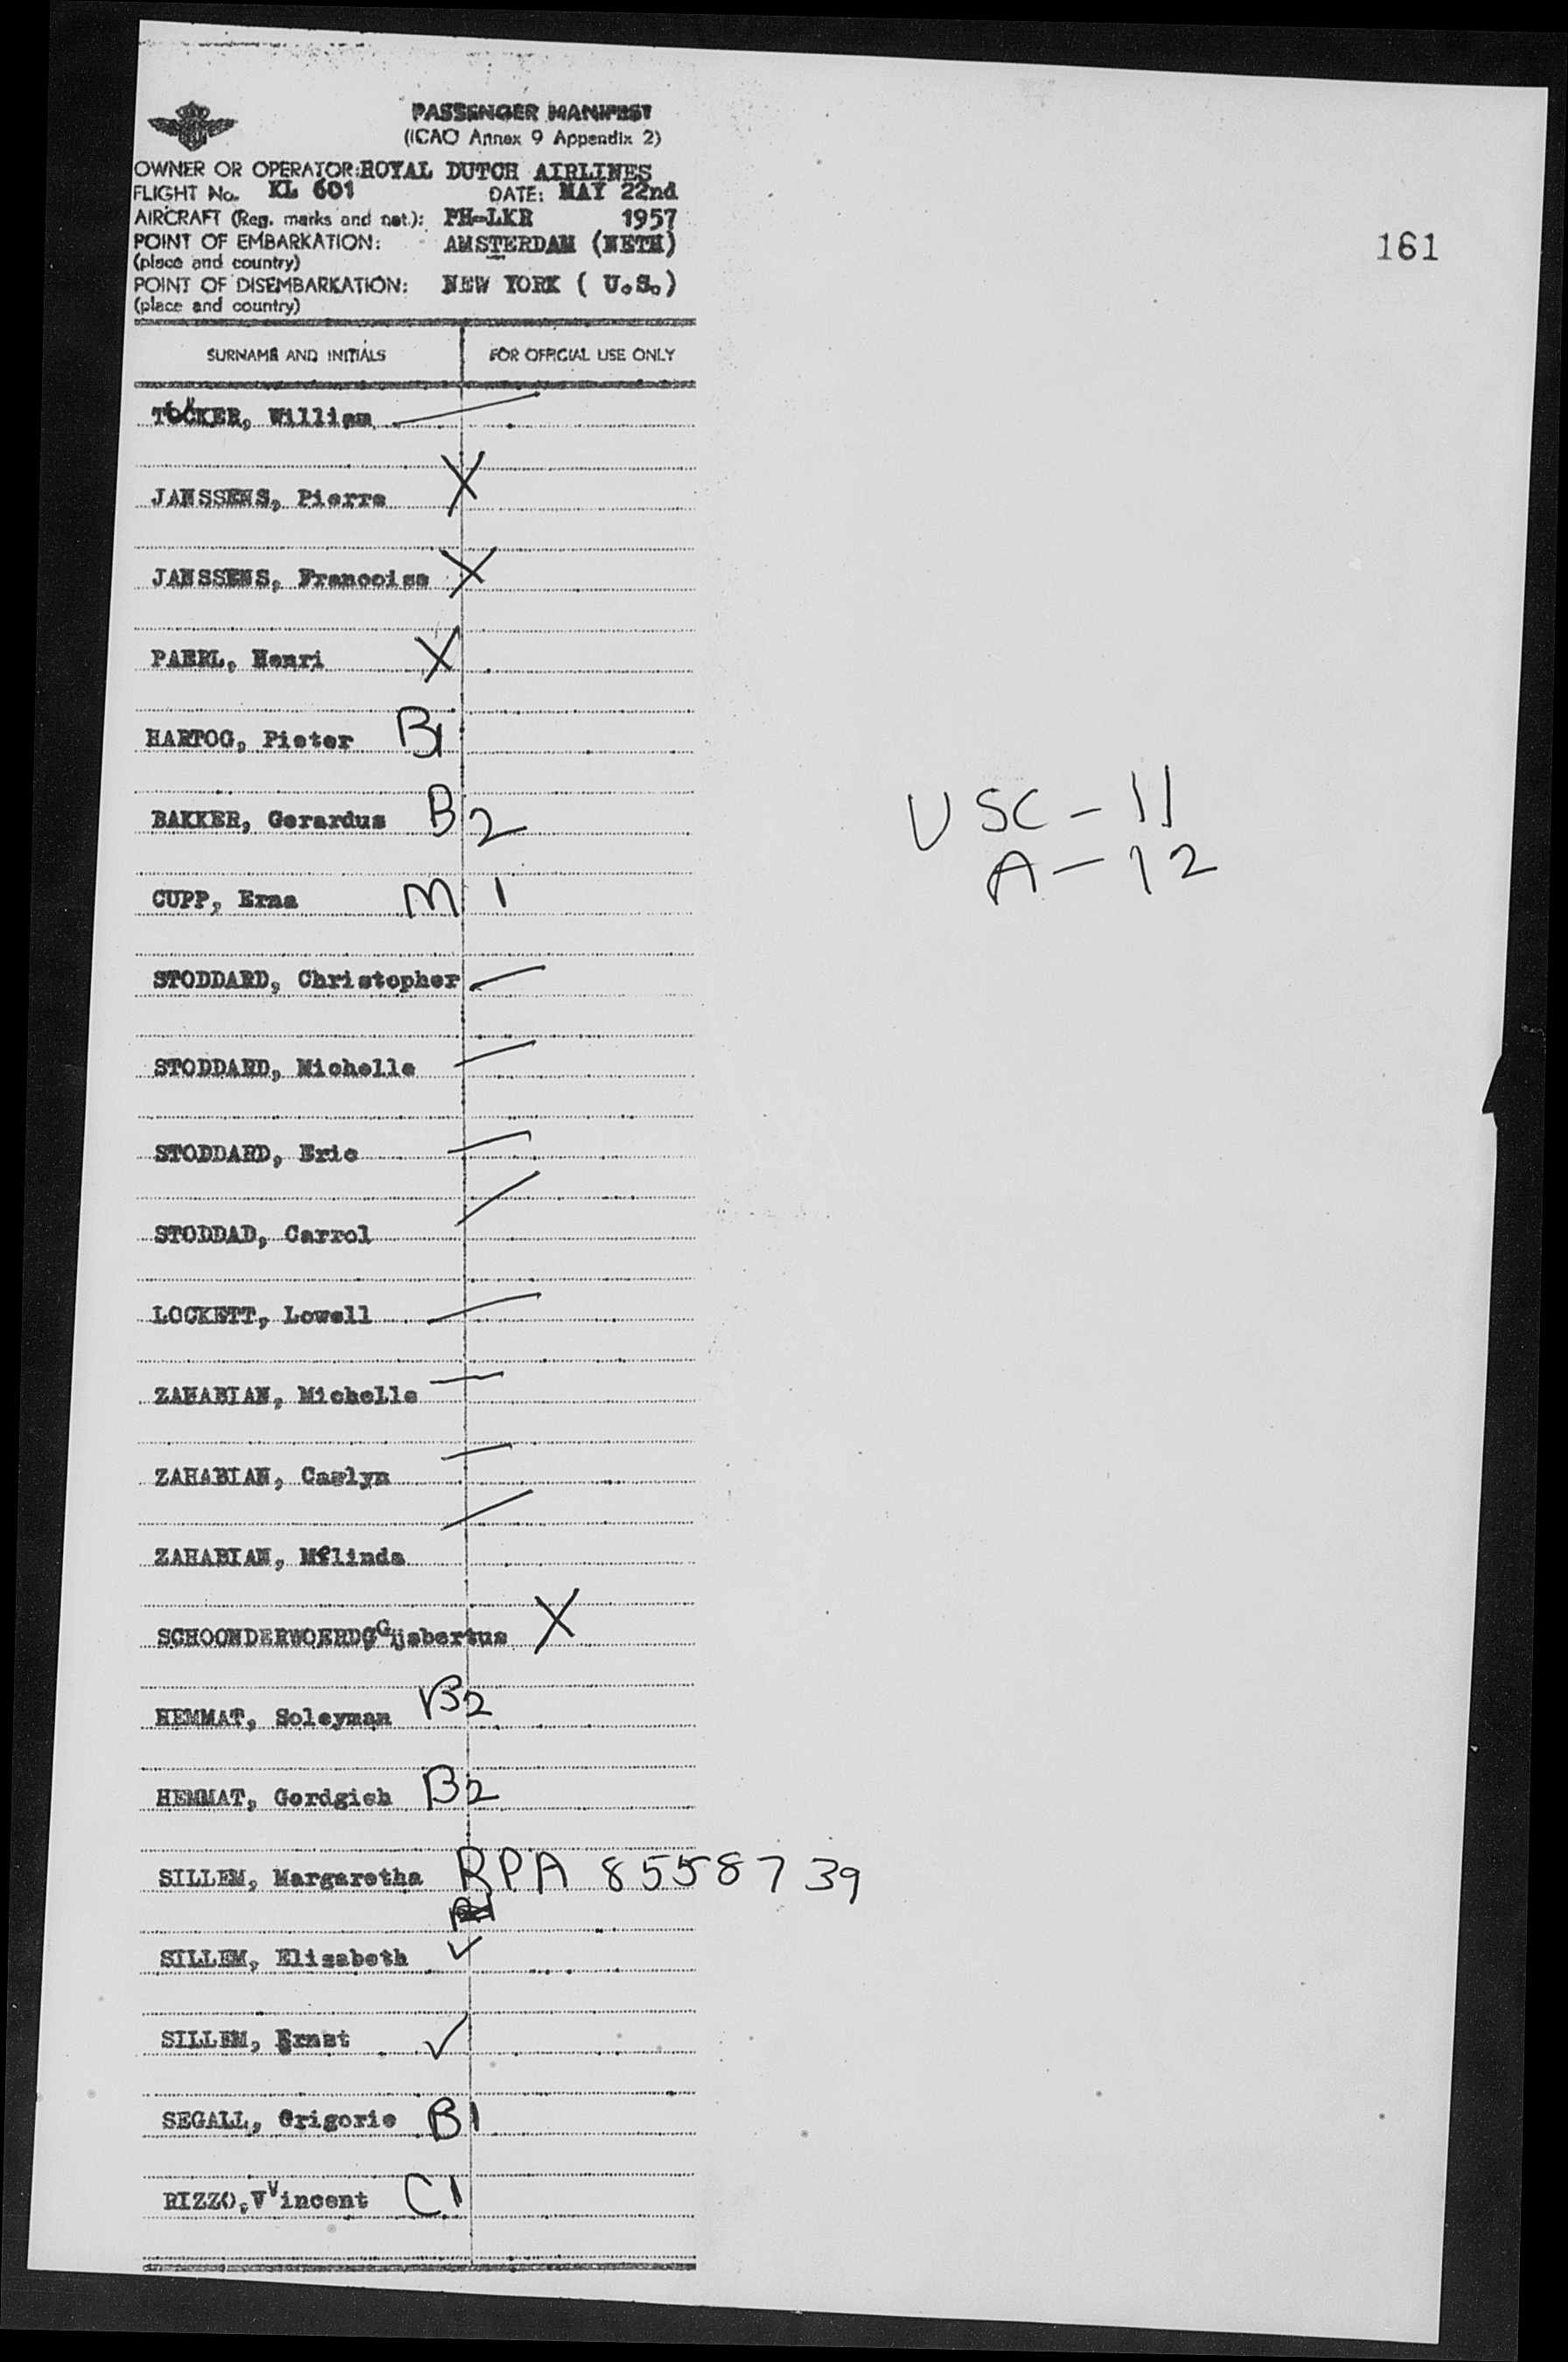 PASSENGER MANIFEST
(ICAO Annex 9 Appendix 2)
OWNER OR OPERATOR: ROYAL DUTCH AIRLINES
FLIGHT No. KL 601 DATE: MAY 22nd
AIRCRAFT (Reg. marks and nat.): PH-LKR 1957
POINT OF EMBARKATION: AMSTERDAM (NETH)
(place and country)
POINT OF DISEMBARKATION: NEW YORK ( U.S.)
(place and country)
161
SURNAME AND INITIALS FOR OFFICIAL USE ONLY
TUCKER, William
JANSSENS, Pierre X
JANSSENS, Francoise X
PAERL, Henri X
HARTOG, Pieter B1
BAKKER, Gerardus B2
USC - 11
A - 12
CUPP, Erna M 1
STODDARD, Christopher
STODDARD, Michelle
STODDARD, Eric
STODDAD, Carrol
LOCKETT, Lowell
ZAHABIAN, Michelle
ZAHABIAN, Caslyn
ZAHABIAN, Melinda
SCHOONDERWOERDG Gijsbertus X
HEMMAT, Soleyman B2
HEMMAT, Gordgish B2
SILLEM, Margaretha RPA 8558739
SILLEM, Elisabeth ✓
SILLEM, Ernst ✓
SEGALL, Grigorie B1
RIZZO, Vincent C1